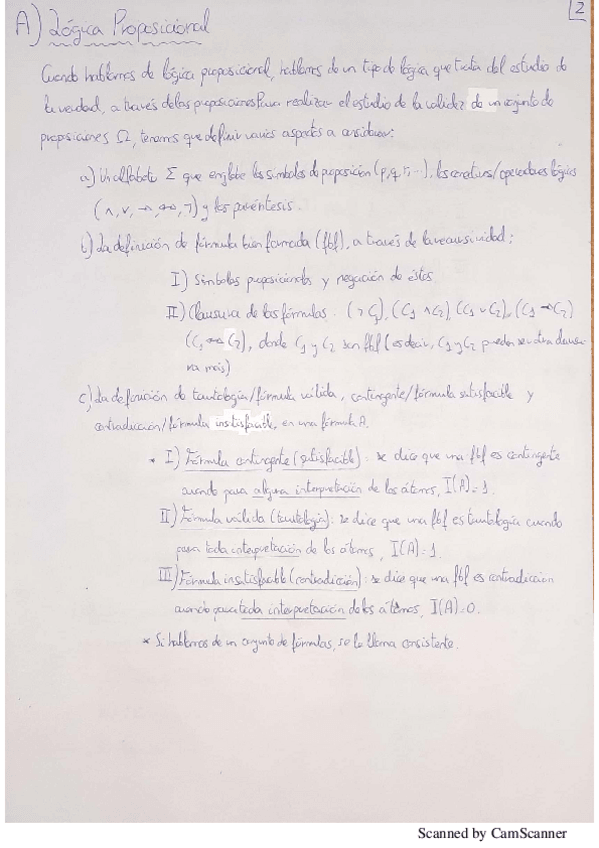 2
A) Lógica Proposicional
Cuando hablamos de lógica proposicional, hablamos de un tipo de lógica que trata del estudio de
la verdad, a través de las proposiciones. Para realizar el estudio de la validez de un conjunto de
proposiciones Ω, tenemos que definir varios aspectos a considerar:
a) Un alfabeto Σ que englobe los símbolos de proposición (p, q, r, ...), los conectivos/operadores lógicos
(∧, ∨, →, ↔, ¬) y los paréntesis.
b) La definición de fórmula bien formada (fbf), a través de la recursividad:
I) Símbolos proposicionales y negación de éstos.
II) Clausura de las fórmulas. (¬C₁), (C₁ ∧ C₂), (C₁ ∨ C₂), (C₁ → C₂)
(C₁ ↔ C₂), donde C₁ y C₂ son fbf (es decir, C₁ y C₂ pueden ser otra clausu-
ra más)
c) La definición de tautología/fórmula válida, contingente/fórmula satisfacible y
contradicción/fórmula insatisfacible, en una fórmula A.
* I) Fórmula contingente (satisfacible): se dice que una fbf es contingente
cuando para alguna interpretación de los átomos, I(A)=1.
II) Fórmula válida (tautología): se dice que una fbf es tautología cuando
para toda interpretación de los átomos, I(A)=1.
III) Fórmula insatisfacible (contradicción): se dice que una fbf es contradicción
cuando para toda interpretación de los átomos, I(A)=0.
* Si hablamos de un conjunto de fórmulas, se le llama consistente.
Scanned by CamScanner